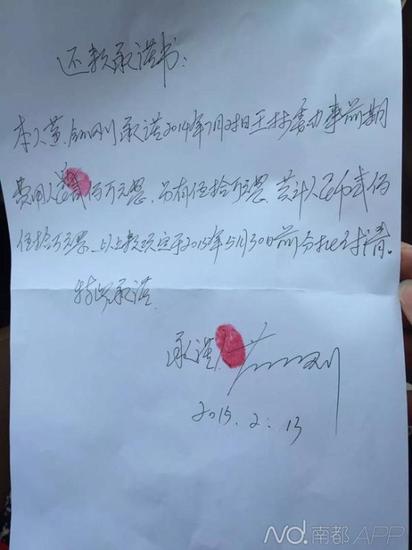 还款承诺书:
本人董 刚承诺2014年7月 日 办事前期
费用人 贰佰万元整、另有伍拾万元整、共计人民币贰佰
伍拾万元整、以上款项定于2015年5月30日前分批 清。
特此承诺
承诺 刚
2015.2.13
Nd.南都APP